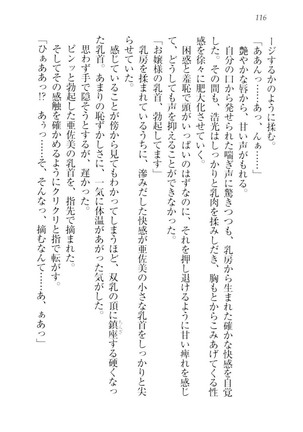 116
ージするかのように揉む。
「ああんっ……あっ、んぁ……」
艶やかな唇から、甘い声がもれた。
自分の口から発せられた喘ぎ声に驚きつつも、乳房から生まれた確かな快感を自覚
する。その間も、浩光はしっかりと乳肉を揉みしだき、胸もとからこみあげてくる性
感を徐々に肥大化させていく。
困惑と羞恥で頭がいっぱいのはずなのに、それを押し退けるように甘い痺れを感じ
て、どうしても声を抑えることができなかった。
「お嬢様の乳首、勃起してます」
乳房を揉まれているうちに、滲みだした快感が亜佐美の小さな乳首をしっかりと尖
らせていた。
感じていることが傍から見てもわかってしまうほど、双乳の頂に鎮座する硬くなっ
た乳首。あまりの恥ずかしさに、一気に体温があがった気がした。
思わず手で隠そうとするが、遅かった。
ピンッと勃起した亜佐美の乳首を、指先で摘まれた。
そしてその感触を確かめるようにクリクリと指で転がす。
「ひぁああっ!?　あぅっ……そ、そんなっ、摘むなんて……あ、ぁあっ」